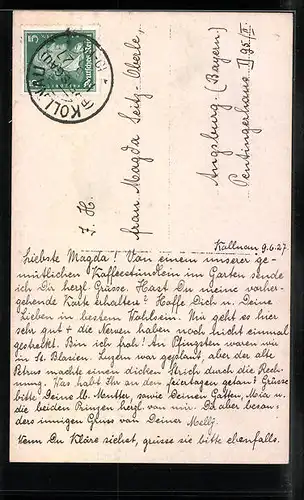 5
Deutsches Reich
KOLLNAU
I. H.
Frau Magda Seitz-Oberle,
Augsburg. (Bayern)
Peutingerhaus D 95 II.
Kollnau 9.6.27.
Liebste Magda! Von einem unserer ge-
mütlichen Kaffeestündlein im Garten sende
ich Dir herzl. Grüsse. Hast Du meine vorher-
gehende Karte erhalten? Hoffe Dich u. Deine
Lieben in bestem Wohlsein. Mir geht es hier
sehr gut & die Nerven haben noch nicht einmal
gestreikt. Bin ich froh! An Pfingsten waren wir
in St. Blasien. Luzern war geplant, aber der alte
Petrus machte einen dicken Strich durch die Rech-
nung. Was habt Ihr an den Feiertagen getan? Grüsse
bitte Deine lb. Mutter, sowie Deinen Gatten, und
die beiden herzl. von mir. Du aber beson-
ders innigen Gruss von Deiner Melly.
Wenn Du Kläre siehst, grüsse sie bitte ebenfalls.